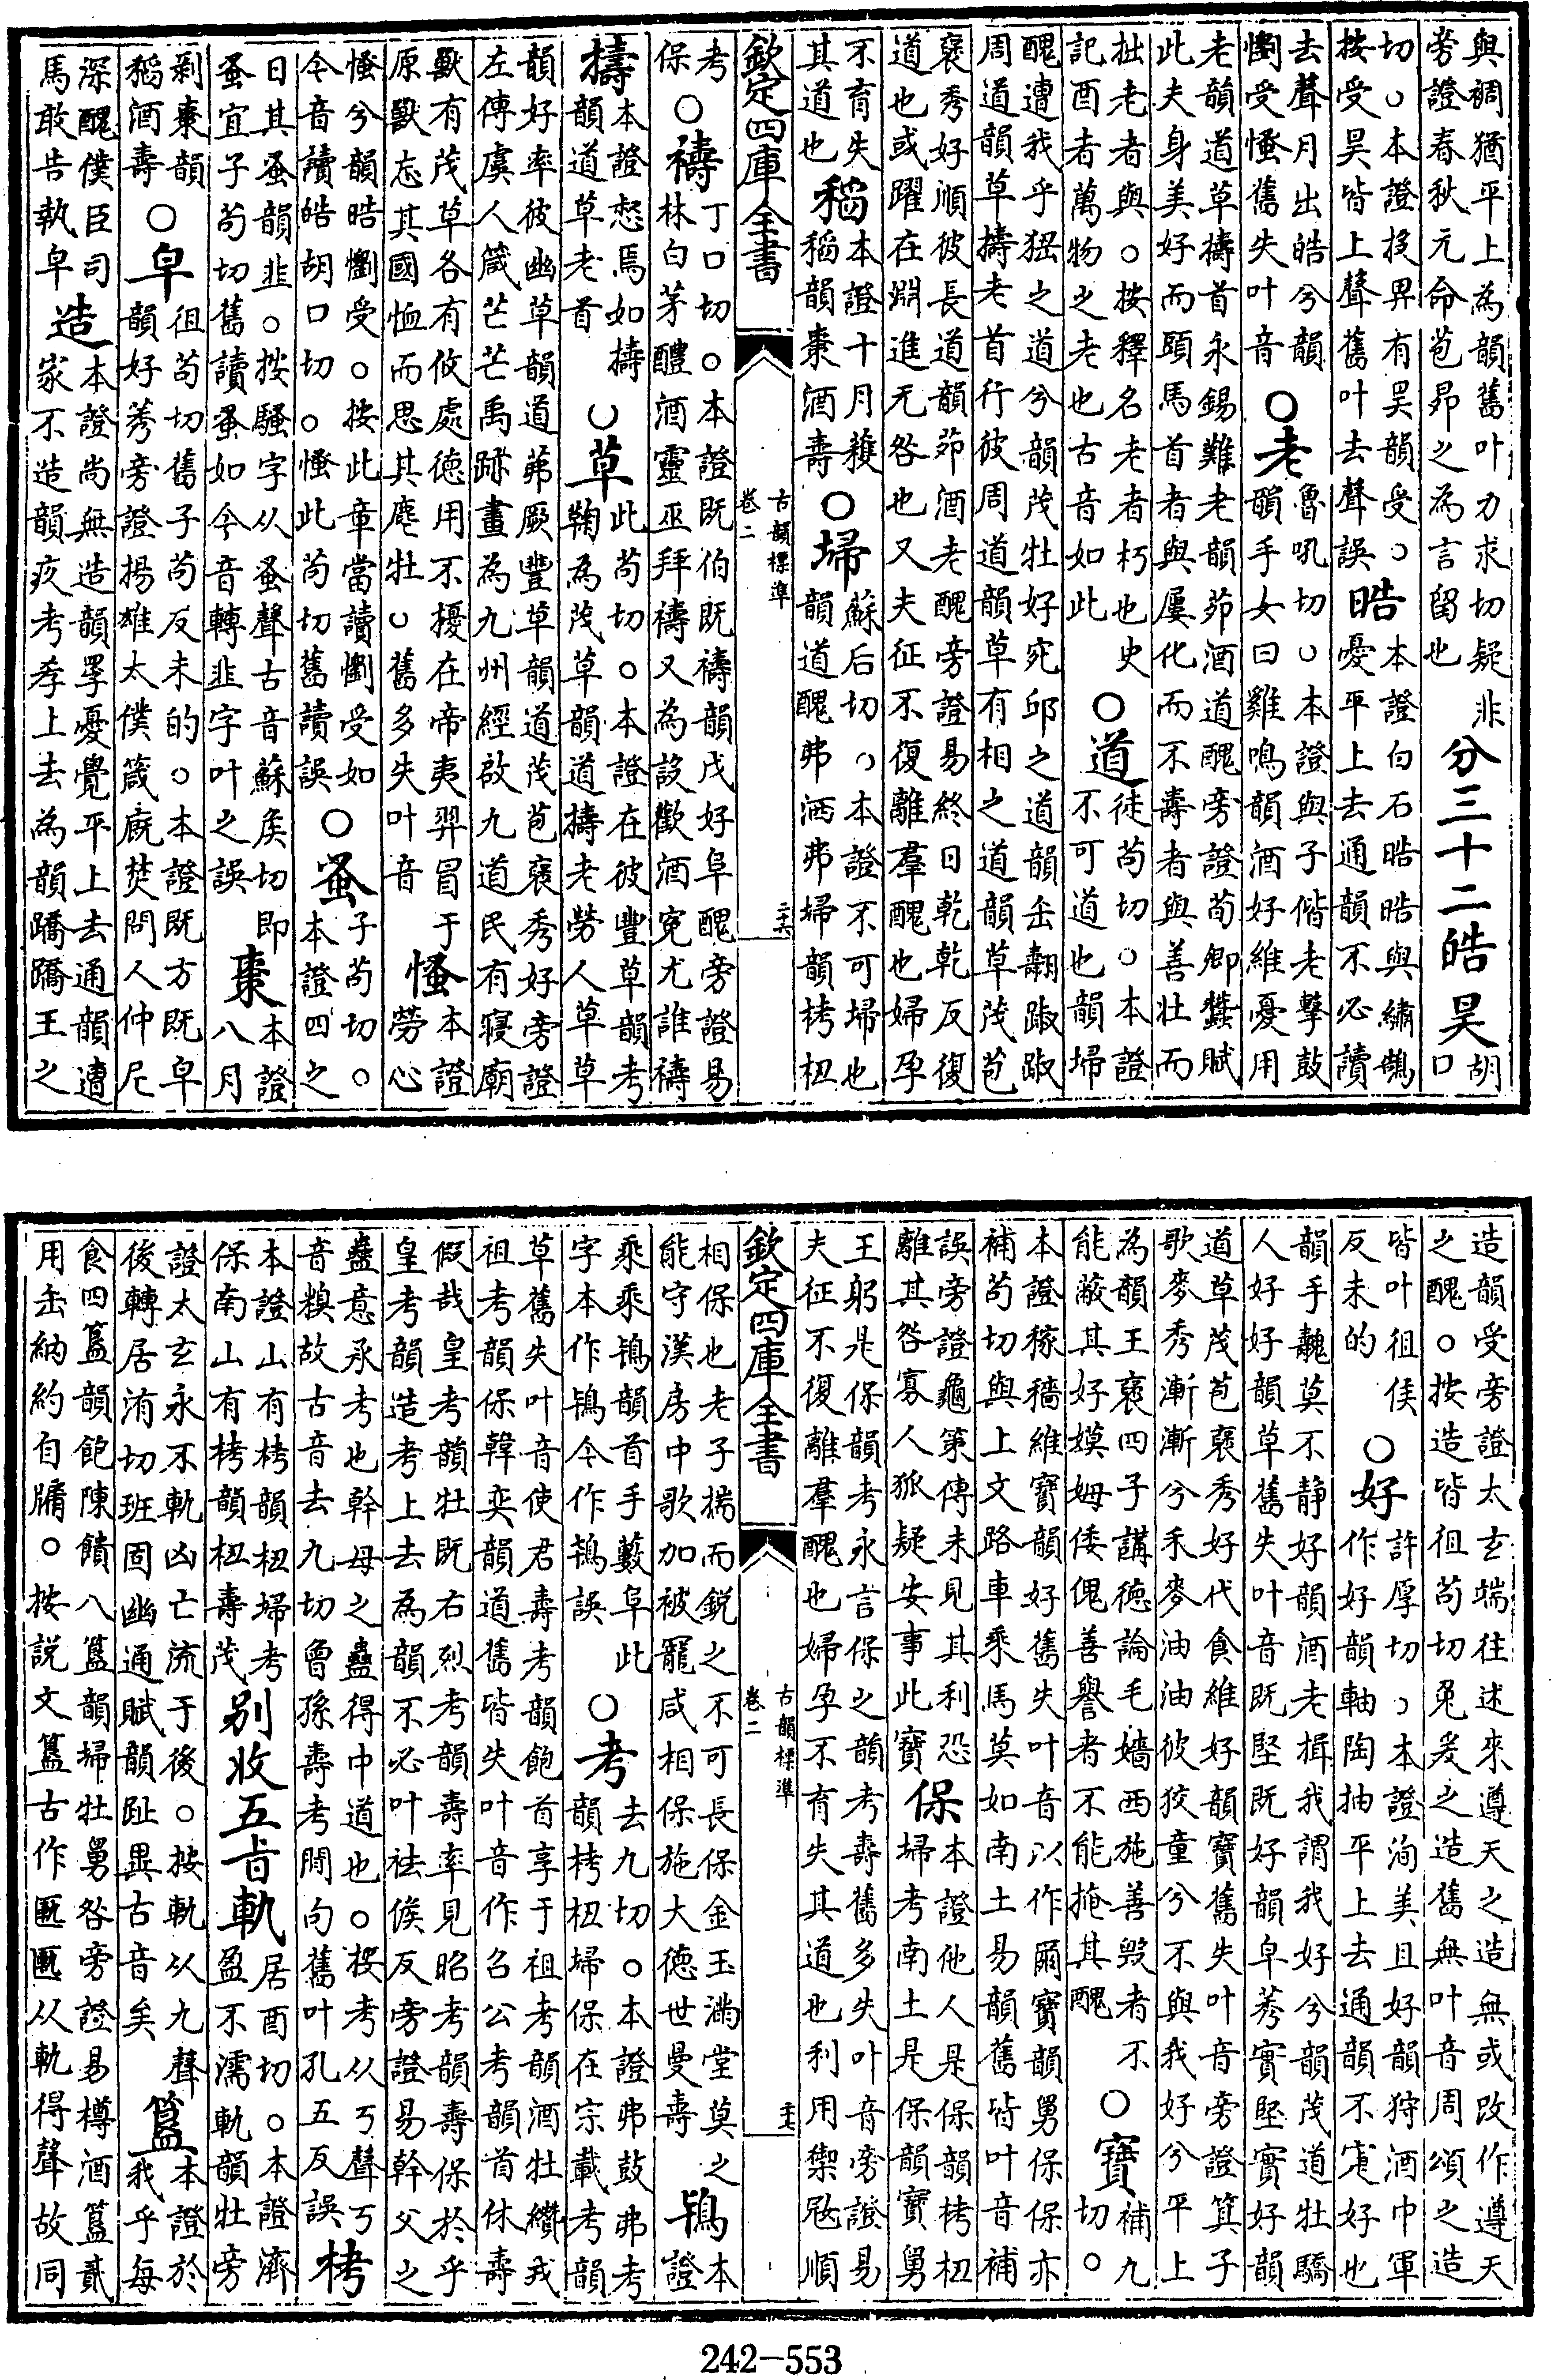 與裯猶平上為韻舊叶力求切疑非
旁證春秋元命苞昴之為言留也
分三十二皓
昊
胡
口
切○本證投畀有昊韻受○
按受昊皆上聲舊叶去聲誤
皓
本證白石皓皓與繡鵠
憂平上去通韻不必讀
去聲月出皓兮韻
懰受慅舊失叶音
○老
魯吼切○本證與子偕老擊鼓
韻手女曰雞鳴韻酒好維憂用
老韻道草擣首永錫難老韻茆酒道醜旁證荀卿蠶賦
此夫身美好而頭馬首者與屢化而不壽者與善壯而
拙老者與○按釋名老者朽也史
記酉者萬物之老也古音如此
○道
徒苟切○本證
不可道也韻埽
醜遭我乎峱之道兮韻茂牡好宛邱之道韻缶翿踧踧
周道韻草擣老首行彼周道韻草有相之道韻草茂苞
褎秀好順彼長道韻茆酒老醜旁證易終日乾乾反復
道也或躍在淵進无咎也又夫征不復離羣醜也婦孕
不育失
其道也
稻
本證十月穫
稻韻棗酒壽
○埽
蘇后切○本證不可埽也
韻道醜弗洒弗埽韻栲杻
欽定四庫全書
古韻標準
卷二
二十六
考
保
○禱
丁口切○本證既伯既禱韻戊好阜醜旁證易
林白茅醴酒靈巫拜禱又為設歡酒寃尤誰禱
擣
本證惄焉如擣
韻道草老首
○草
此苟切○本證在彼豐草韻考
鞫為茂草韻道擣老勞人草草
韻好率彼幽草韻道茀厥豐草韻道茂苞褎秀好旁證
左傳虞人箴芒芒禹跡畫為九州經啟九道民有寢廟
獸有茂草各有攸處德用不擾在帝夷羿冒于
原獸忘其國恤而思其麀牡○舊多失叶音
慅
本證
勞心
慅兮韻皓懰受○按此章當讀懰受如
今音讀皓胡口切○慅此苟切舊讀誤
○蚤
子苟切○
本證四之
日其蚤韻韭○按騷字从蚤聲古音蘇矦切即
蚤宜子苟切舊讀蚤如今音轉韭字叶之誤
棗
本證
八月
剥棗韻
稻酒壽
○皁
徂苟切舊子苟反未的○本證既方既皁
韻好莠旁證揚雄太僕箴廐焚問人仲尼
深醜僕臣司
馬敢告執皁
造
本證尚無造韻罦憂覺平上去通韻遭
家不造韻疚考孝上去為韻蹻蹻王之
造韻受旁證太玄端往述來遵天之造無或改作遵天
之醜○按造皆徂苟切兎爰之造舊無叶音周頌之造
皆叶徂侯
反未的
○好
許厚切○本證洵美且好韻狩酒巾軍
作好韻軸陶抽平上去通韻不寔好也
韻手魗莫不静好韻酒老揖我謂我好兮韻茂道牡驕
人好好韻草舊失叶音既堅既好韻皁莠實堅實好韻
道草茂苞褎秀好代食維好韻寶舊失叶音旁證箕子
歌麥秀漸漸兮禾麥油油彼狡童兮不與我好兮平上
為韻王褒四子講德論毛嬙西施善毁者不
能蔽其好嫫姆倭傀善譽者不能掩其醜
○寶
補九
切○
本證稼穡維寶韻好舊失叶音以作爾寶韻舅保保亦
補苟切與上文路車乘馬莫如南土易韻舊皆叶音補
誤旁證龜策傳未見其利恐
離其咎寡人狐疑安事此寶
保
本證他人是保韻栲杻
埽考南土是保韻寶舅
王躬是保韻考永言保之韻考壽舊多失叶音旁證易
夫征不復離羣醜也婦孕不育失其道也利用禦宼順
相保也老子揣而鋭之不可長保金玉滿堂莫之
能守漢房中歌加被寵咸相保施大德世曼壽
鴇
本
證
乘乘鴇韻首手藪阜此
字本作鴇今作鴇誤
○考
去九切○本證弗鼓弗考
韻栲杻埽保在宗載考韻
欽定四庫全書
古韻標準
卷二
二十七
草舊失叶音使君壽考韻飽首享于祖考韻酒牡纘我
祖考韻保韓奕韻道舊皆失叶音作召公考韻首休壽
假哉皇考韻牡既右烈考韻壽率見昭考韻壽保於乎
皇考韻造考上去為韻不必叶祛候反旁證易幹父之
蠱意承考也幹母之蠱得中道也○按考从丂聲丂
音糗故古音去九切曾孫壽考閒句舊叶孔五反誤
栲
本證山有栲韻杻埽考
保南山有栲韻杻壽茂
別收五旨
軌
居酉切○本證濟
盈不濡軌韻牡旁
證太玄永不軌凶亡流于後○按軌从九聲
後轉居洧切班固幽通賦韻趾異古音矣
簋
本證於
我乎每
食四簋韻飽陳饋八簋韻埽牡舅咎旁證易樽酒簋貳
用缶納約自牖○按説文簋古作匭匭从軌得聲故同
242-553